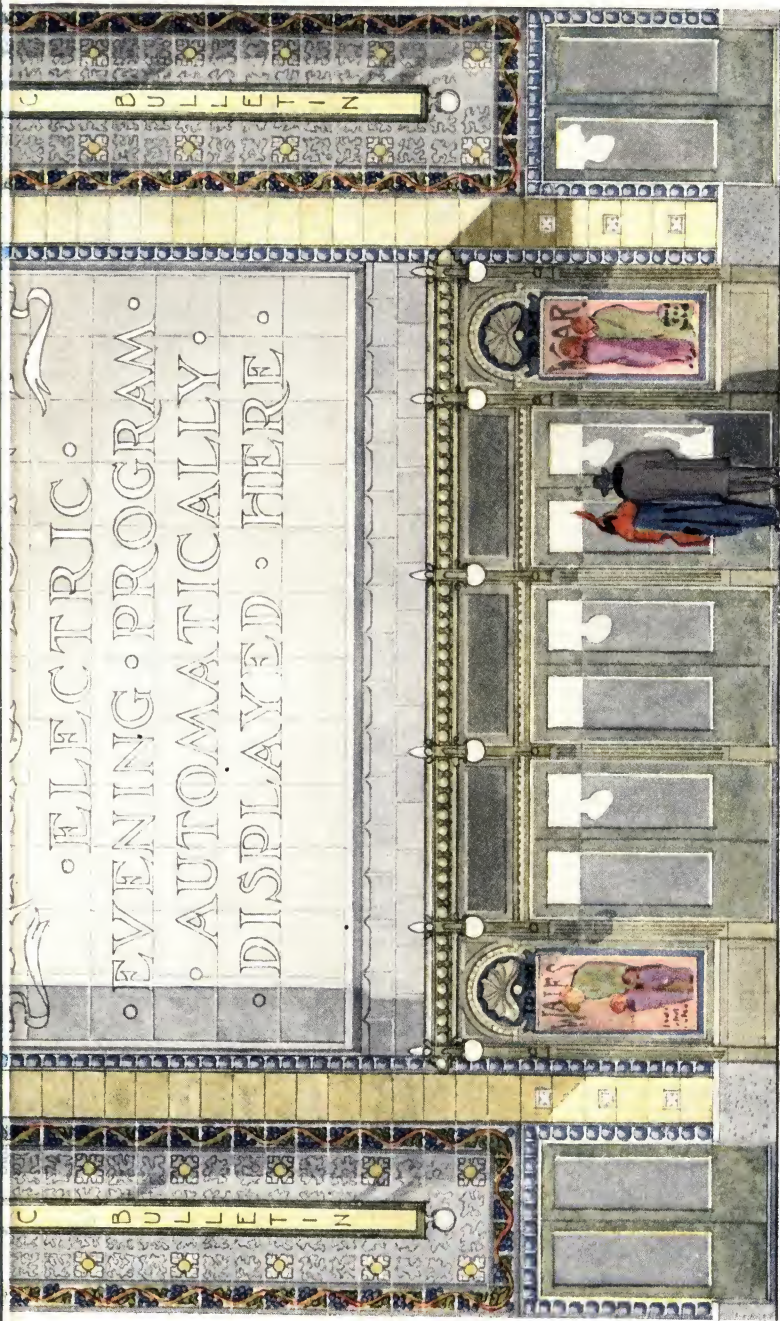 C BULLETIN
·ELECTRIC·
·EVENING·PROGRAM·
·AUTOMATICALLY·
·DISPLAYED·HERE·
C BULLETIN
WAIFS